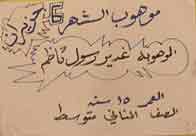 موهوب الشهر
الموهوبة غدير رسول ناظم
العمر ١٥ سنة
الصف الثاني متوسط